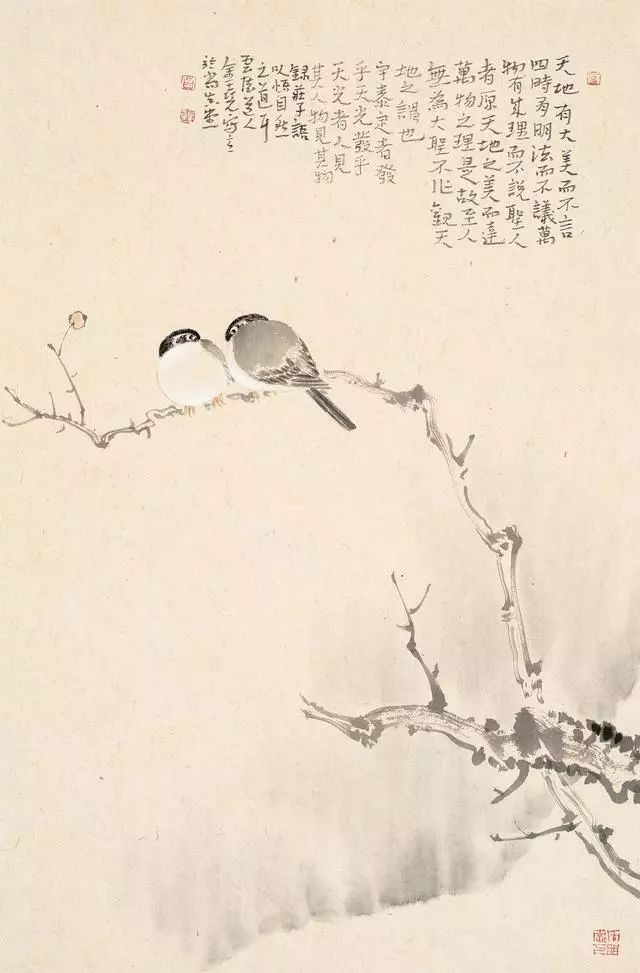 天地有大美而不言
四時有明法而不議萬
物有成理而不說聖人
者原天地之美而達
萬物之理是故至人
無為大聖不作觀天
地之謂也
宇泰定者發
乎天光發乎
天光者人見
其人物見其物
錄莊子語
以悟自然
之道耳
道人
寫
於尚